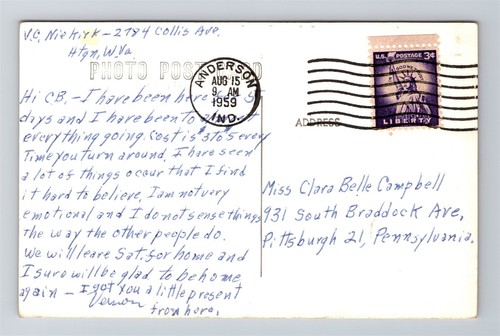 V.C. Niekirk - 2784 Collis Ave.
Htgn, W.Va.
PHOTO POST
ANDERSON
AUG 15
9 AM
1959
IND.
U.S. POSTAGE 3¢
IN GOD WE TRUST
LIBERTY
ADDRESS
Hi CB. - I have been here
days and I have been to
everything going. Cost is $ to $ every
Time you turn around. I have seen
a lot of things occur that I find
it hard to believe. I am not very
emotional and I do not sense things
the way the other people do.
We will leave Sat. for home and
I sure will be glad to be home
again - I got you a little present
Vernon from here.
Miss Clara Belle Campbell
931 South Braddock Ave,
Pittsburgh 21, Pennsylvania.